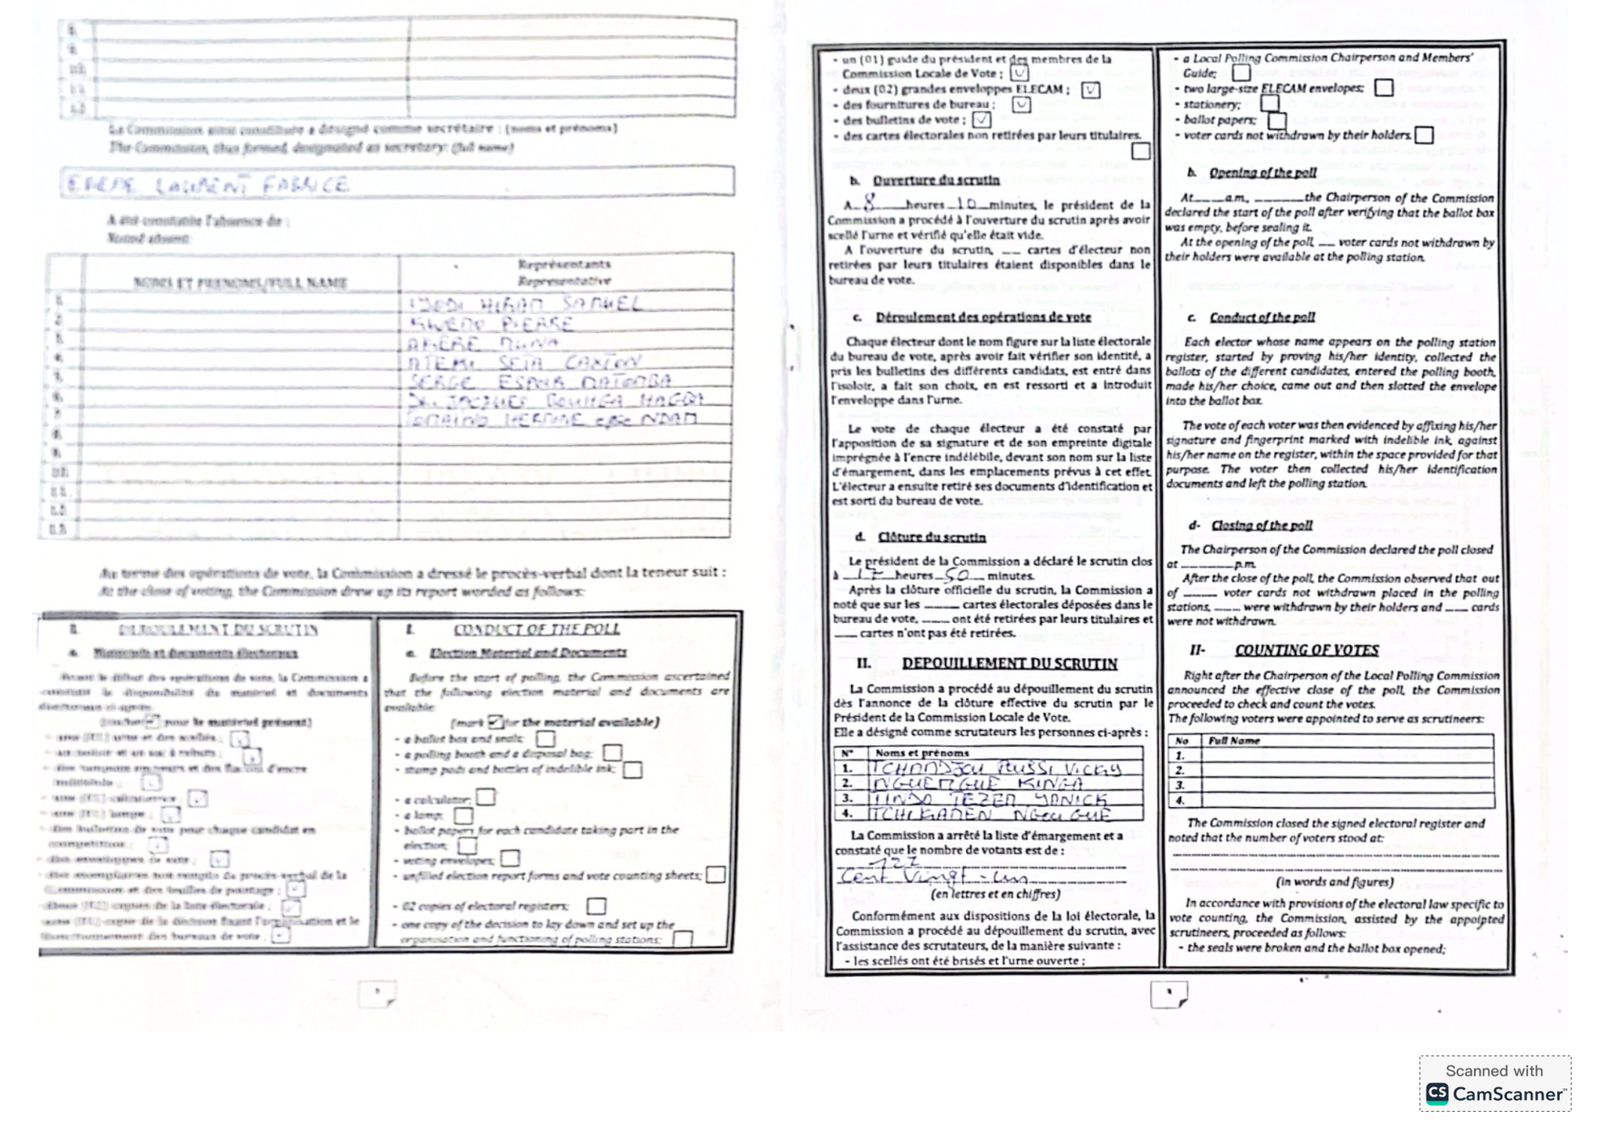 8.
9.
10.
11.
12.
La Commission ainsi constituée a désigné comme secrétaire : (noms et prénoms)
The Commission, thus formed, designated as secretary: (full name)
LAURENT FABRICE
A été constatée l'absence de :
Noted absent:
NOMS ET PRENOMS/FULL NAME
Représentants
Representative
1. HIRAM SAMUEL
2. KWEMO PIERRE
3. AKERE MUNA
4. ATEKI SETA CAXTON
5. SERGE ESPOIR MATOMBA
6. JACQUES BOUHGA HAGBE
7. HERMINE epse NDAM
8.
9.
10.
11.
12.
13.
Au terme des opérations de vote, la Commission a dressé le procès-verbal dont la teneur suit :
At the close of voting, the Commission drew up its report worded as follows:
I. DEROULEMENT DU SCRUTIN
a. Matériels et documents électoraux
Avant le début des opérations de vote, la Commission a
constaté la disponibilité du matériel et documents
électoraux ci-après
(cocher pour le matériel présent)
- une (01) urne et des scellés ;
- un isoloir et un sac à rebuts ;
- des tampons encreurs et des flacons d'encre
indélébile ;
- une (01) calculatrice ;
- une (01) lampe ;
- des bulletins de vote pour chaque candidat en
compétition ;
- des enveloppes de vote ;
- des exemplaires non remplis du procès-verbal de la
Commission et des feuilles de pointage ;
- deux (02) copies de la liste électorale ;
- une (01) copie de la décision fixant l'organisation et le
fonctionnement des bureaux de vote ;
I. CONDUCT OF THE POLL
a. Election Material and Documents
Before the start of polling, the Commission ascertained
that the following election material and documents are
available:
(mark for the material available)
- a ballot box and seals;
- a polling booth and a disposal bag;
- stamp pads and bottles of indelible ink;
- a calculator;
- a lamp;
- ballot papers for each candidate taking part in the
election;
- voting envelopes;
- unfilled election report forms and vote counting sheets;
- 02 copies of electoral registers;
- one copy of the decision to lay down and set up the
organisation and functioning of polling stations;
- un (01) guide du président et des membres de la
Commission Locale de Vote ;
- deux (02) grandes enveloppes ELECAM ;
- des fournitures de bureau ;
- des bulletins de vote ;
- des cartes électorales non retirées par leurs titulaires.
b. Ouverture du scrutin
A 8 heures 10 minutes, le président de la
Commission a procédé à l'ouverture du scrutin après avoir
scellé l'urne et vérifié qu'elle était vide.
A l'ouverture du scrutin, ___ cartes d'électeur non
retirées par leurs titulaires étaient disponibles dans le
bureau de vote.
c. Déroulement des opérations de vote
Chaque électeur dont le nom figure sur la liste électorale
du bureau de vote, après avoir fait vérifier son identité, a
pris les bulletins des différents candidats, est entré dans
l'isoloir, a fait son choix, en est ressorti et a introduit
l'enveloppe dans l'urne.
Le vote de chaque électeur a été constaté par
l'apposition de sa signature et de son empreinte digitale
imprégnée à l'encre indélébile, devant son nom sur la liste
d'émargement, dans les emplacements prévus à cet effet.
L'électeur a ensuite retiré ses documents d'identification et
est sorti du bureau de vote.
d. Clôture du scrutin
Le président de la Commission a déclaré le scrutin clos
à 17 heures 50 minutes.
Après la clôture officielle du scrutin, la Commission a
noté que sur les ____ cartes électorales déposées dans le
bureau de vote, ____ ont été retirées par leurs titulaires et
___ cartes n'ont pas été retirées.
II. DEPOUILLEMENT DU SCRUTIN
La Commission a procédé au dépouillement du scrutin
dès l'annonce de la clôture effective du scrutin par le
Président de la Commission Locale de Vote.
Elle a désigné comme scrutateurs les personnes ci-après :
N° Noms et prénoms
1. VICKY
2. NGUENGUE KINGA
3. YANICK
4. TCHIKADEN NGOUGUE
La Commission a arrêté la liste d'émargement et a
constaté que le nombre de votants est de :
Cent Vingt-un
(en lettres et en chiffres)
Conformément aux dispositions de la loi électorale, la
Commission a procédé au dépouillement du scrutin, avec
l'assistance des scrutateurs, de la manière suivante :
- les scellés ont été brisés et l'urne ouverte ;
- a Local Polling Commission Chairperson and Members'
Guide;
- two large-size ELECAM envelopes;
- stationery;
- ballot papers;
- voter cards not withdrawn by their holders.
b. Opening of the poll
At____a.m, ______the Chairperson of the Commission
declared the start of the poll after verifying that the ballot box
was empty, before sealing it.
At the opening of the poll, ___ voter cards not withdrawn by
their holders were available at the polling station.
c. Conduct of the poll
Each elector whose name appears on the polling station
register, started by proving his/her identity, collected the
ballots of the different candidates, entered the polling booth,
made his/her choice, came out and then slotted the envelope
into the ballot box.
The vote of each voter was then evidenced by affixing his/her
signature and fingerprint marked with indelible ink, against
his/her name on the register, within the space provided for that
purpose. The voter then collected his/her identification
documents and left the polling station.
d- Closing of the poll
The Chairperson of the Commission declared the poll closed
at ________p.m.
After the close of the poll, the Commission observed that out
of _____ voter cards not withdrawn placed in the polling
stations, ____ were withdrawn by their holders and ____ cards
were not withdrawn.
II- COUNTING OF VOTES
Right after the Chairperson of the Local Polling Commission
announced the effective close of the poll, the Commission
proceeded to check and count the votes.
The following voters were appointed to serve as scrutineers:
No Full Name
1.
2.
3.
4.
The Commission closed the signed electoral register and
noted that the number of voters stood at:
(in words and figures)
In accordance with provisions of the electoral law specific to
vote counting, the Commission, assisted by the appointed
scrutineers, proceeded as follows:
- the seals were broken and the ballot box opened;
Scanned with
CS CamScanner